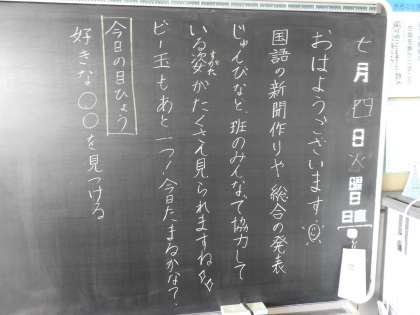 七月四日火曜日
日直
おはようございます。
国語の新聞作りや総合の発表
じゅんびなど、班のみんなで協力して
いる姿がたくさん見られますね
すがた
ビー玉もあと一つ！今日たまるかな？
今日の目ひょう
好きな〇〇を見つける